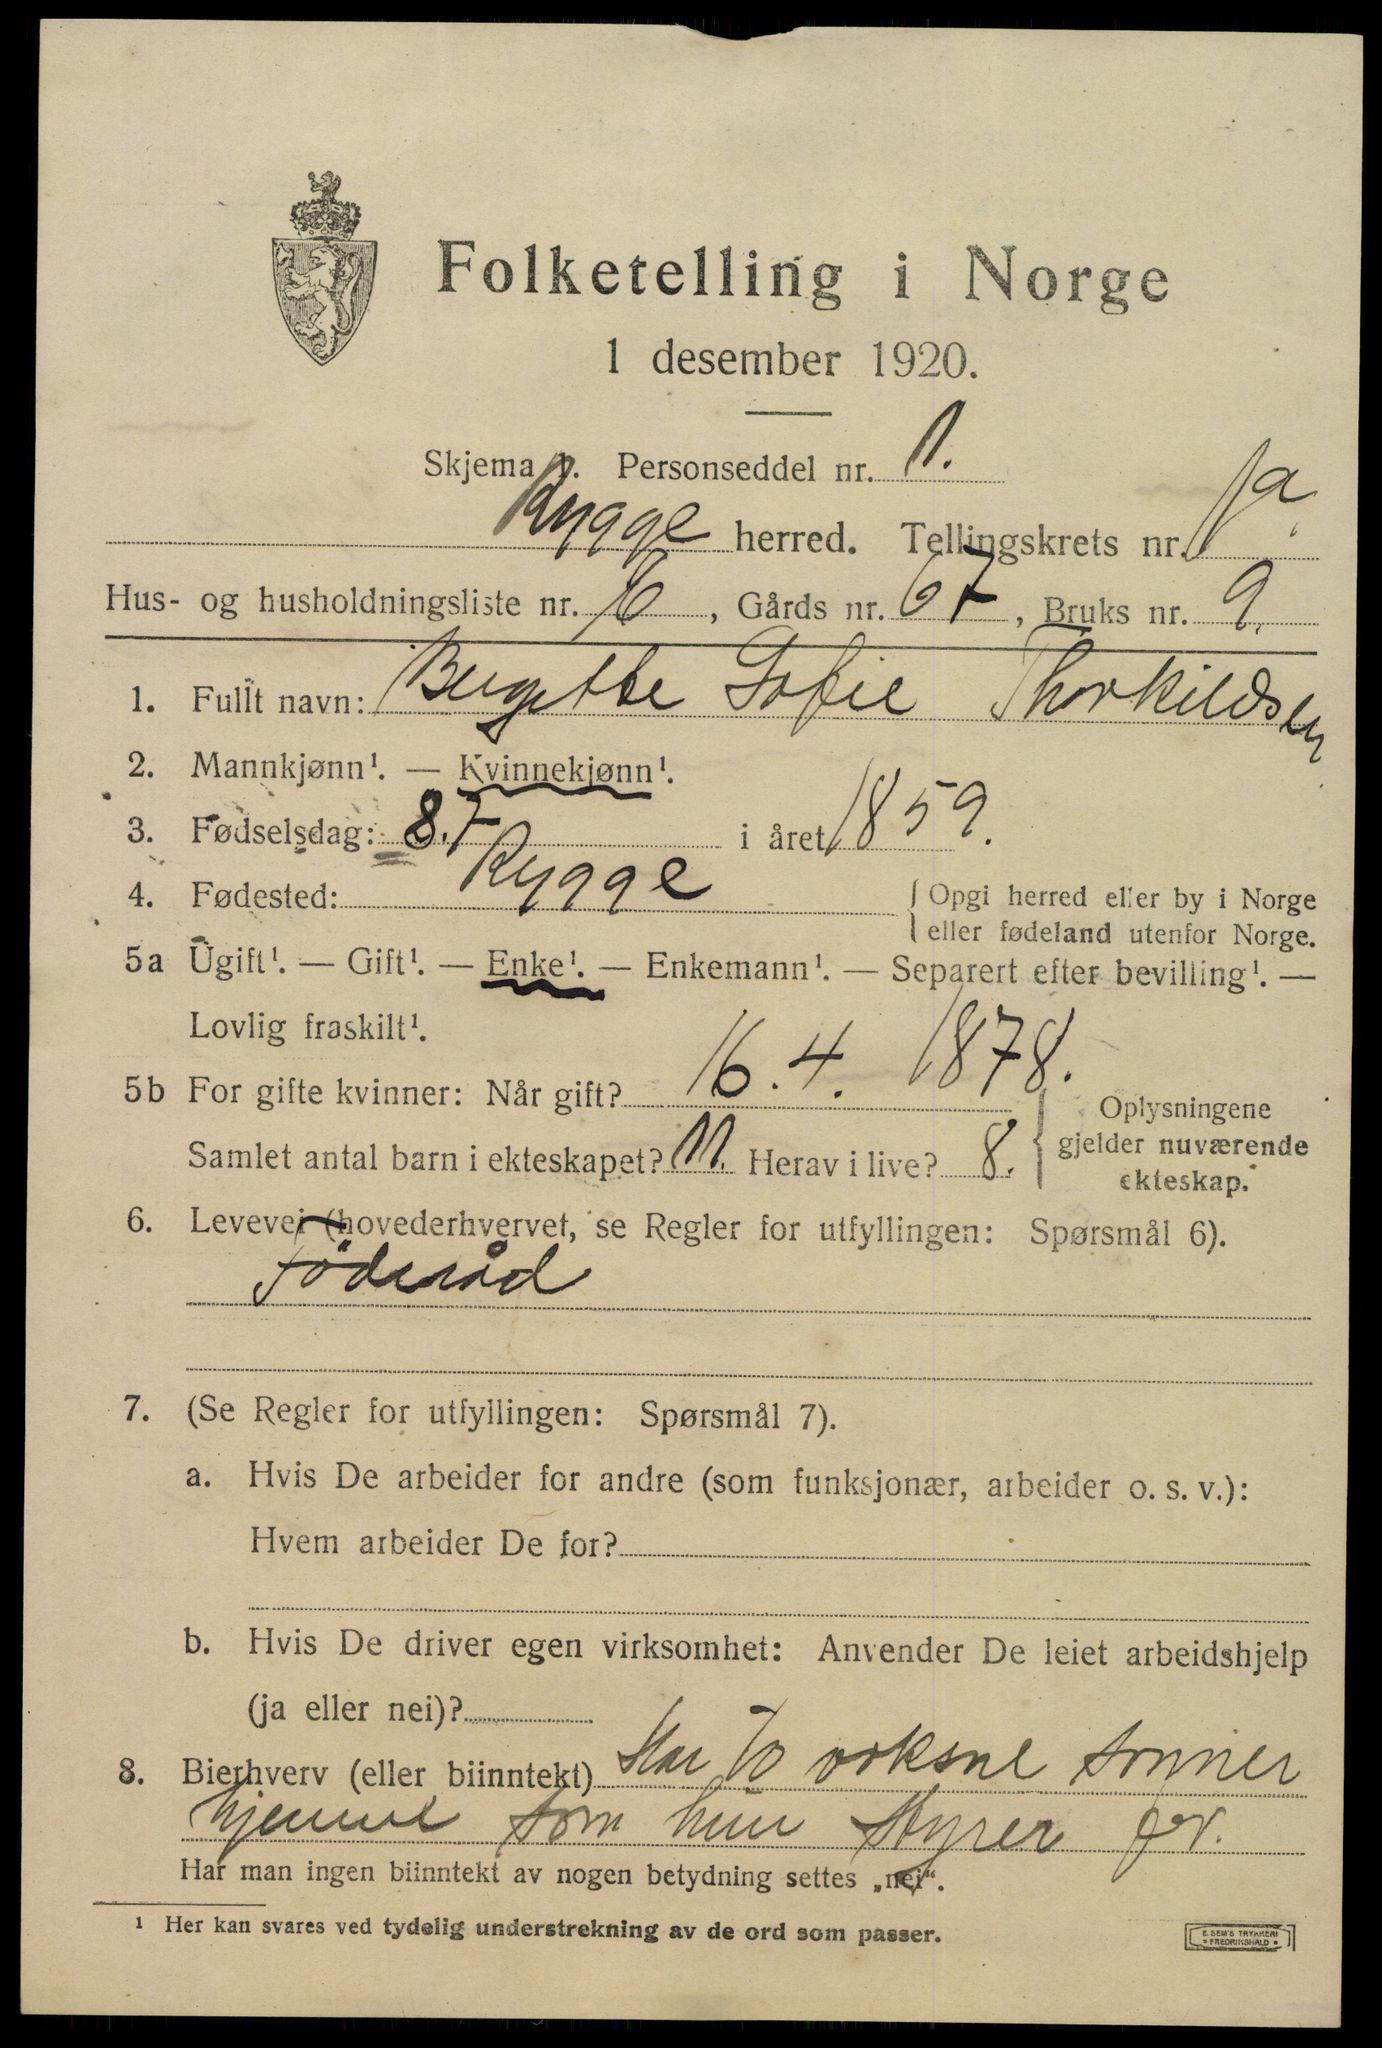 Folketelling i Norge
1 desember 1920.
Skjema 1. Personseddel nr. 1.
Rygge herred. Tellingskrets nr. 1a
Hus- og husholdningsliste nr. 6, Gårds nr. 67, Bruks nr. 9.
1. Fullt navn: Birgitte Sofie Thorkildsen
2. Mannkjønn¹. — Kvinnekjønn¹.
3. Fødselsdag: 8.7 i året 1859.
4. Fødested: Rygge {Opgi herred eller by i Norge
eller fødeland utenfor Norge.
5a Ugift¹. — Gift¹. — Enke¹. — Enkemann¹. — Separert efter bevilling¹. —
Lovlig fraskilt¹.
5b For gifte kvinner: Når gift? 16.4. 1878.
Samlet antal barn i ekteskapet? 11. Herav i live? 8.
Oplysningene
gjelder nuværende
ekteskap.
6. Levevei (hovederhvervet, se Regler for utfyllingen: Spørsmål 6).
Föderåd
7. (Se Regler for utfyllingen: Spørsmål 7).
a. Hvis De arbeider for andre (som funksjonær, arbeider o. s. v.):
Hvem arbeider De for?
b. Hvis De driver egen virksomhet: Anvender De leiet arbeidshjelp
(ja eller nei)?
8. Bierhverv (eller biinntekt) Har To voksne sønner
hjemme som hun styrer for.
Har man ingen biinntekt av nogen betydning settes „nei“.
¹ Her kan svares ved tydelig understrekning av de ord som passer.
E. SEM'S TRYKKERI
FREDRIKSHALD